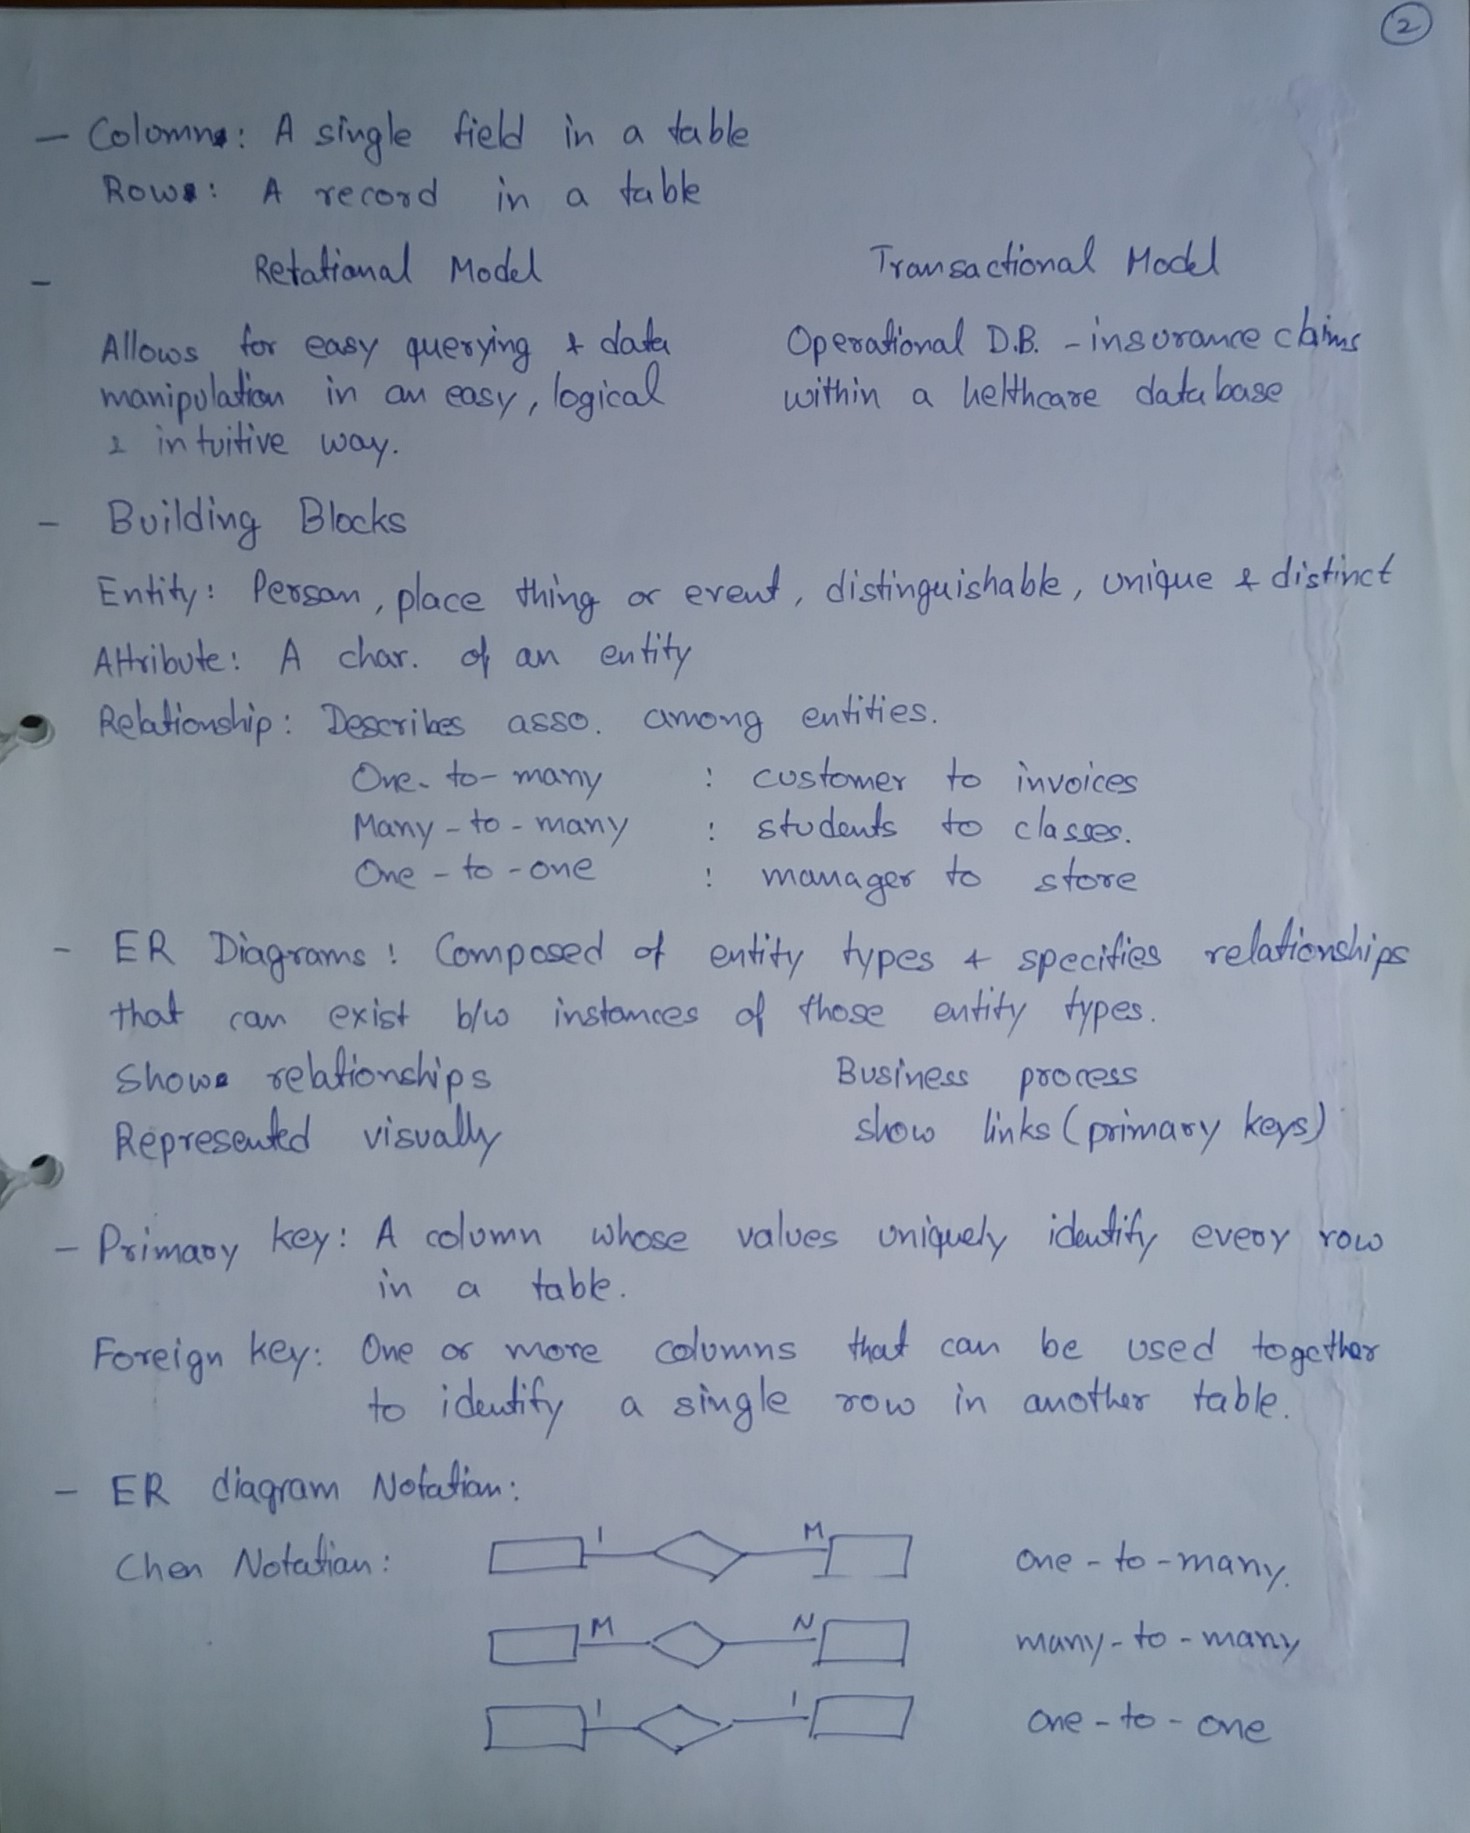 2
- Colomn: A single field in a table
Row: A record in a table
- Retational Model Transactional Model
Allows for easy querying & data Operational D.B. - insurance claims
manipulation in an easy, logical within a helthcare database
& intuitive way.
- Building Blocks
Entity: Person, place thing or event, distinguishable, unique & distinct
Attribute: A char. of an entity
Relationship: Describes asso. among entities.
One-to-many : customer to invoices
Many-to-many : students to classes.
One-to-one : manager to store
- ER Diagrams: Composed of entity types & specifies relationships
that can exist b/w instances of those entity types.
Shows relationships Business process
Represented visually show links (primary keys)
- Primary key: A column whose values uniquely identify every row
in a table.
Foreign key: One or more columns that can be used together
to identify a single row in another table.
- ER diagram Notation:
Chen Notation: 1 M one-to-many.
M N many-to-many
1 1 one-to-one